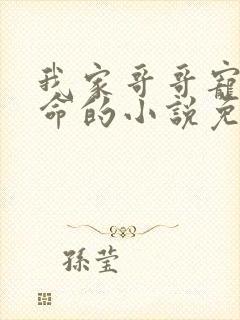 我家哥哥寵
命的小說免
孫瑩